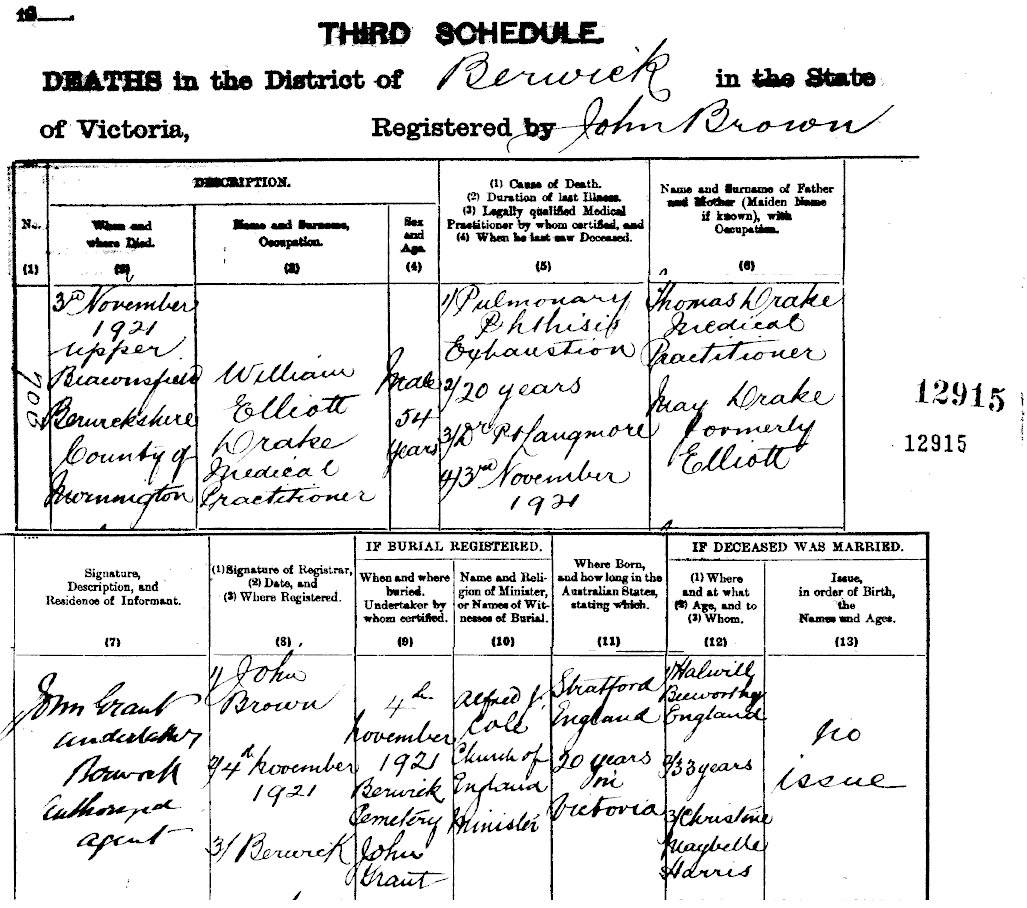 THIRD SCHEDULE.
DEATHS in the District of Berwick in the State
of Victoria, Registered by John Brown
DESCRIPTION.
No.
(1)
When and
where Died.
(2)
Name and Surname,
Occupation.
(3)
Sex
and
Age.
(4)
(1) Cause of Death.
(2) Duration of last Illness.
(3) Legally qualified Medical
Practitioner by whom certified, and
(4) When he last saw Deceased.
(5)
Name and Surname of Father
and Mother (Maiden Name
if known), with
Occupation.
(6)
3rd November
1921
Upper
Beaconsfield
Berwickshire
County of
Mornington
William
Elliott
Drake
Medical
Practitioner
Male
54
years
1/ Pulmonary
Phthisis
Exhaustion
2/ 20 years
3/ Dr Langmore
4/ 3rd November
1921
Thomas Drake
Medical
Practitioner
May Drake
formerly
Elliott
12915
12915
Signature,
Description, and
Residence of Informant.
(7)
(1) Signature of Registrar,
(2) Date, and
(3) Where Registered.
(8)
IF BURIAL REGISTERED.
When and where
buried.
Undertaker by
whom certified.
(9)
Name and Reli-
gion of Minister,
or Names of Wit-
nesses of Burial.
(10)
Where Born,
and how long in the
Australian States,
stating which.
(11)
IF DECEASED WAS MARRIED.
(1) Where
and at what
(2) Age, and to
(3) Whom.
(12)
Issue,
in order of Birth,
the
Names and Ages.
(13)
John Grant
undertaker
Berwick
authorized
agent
1/ John
Brown
2/ 4th November
1921
3/ Berwick
4th
November
1921
Berwick
Cemetery
John
Grant
Alfred J.
Cole
Church of
England
Minister
Stratford
England
20 years
in
Victoria
1/ Halwill
Beeworthy
England
2/ 33 years
3/ Christine
Maybelle
Harris
No
issue